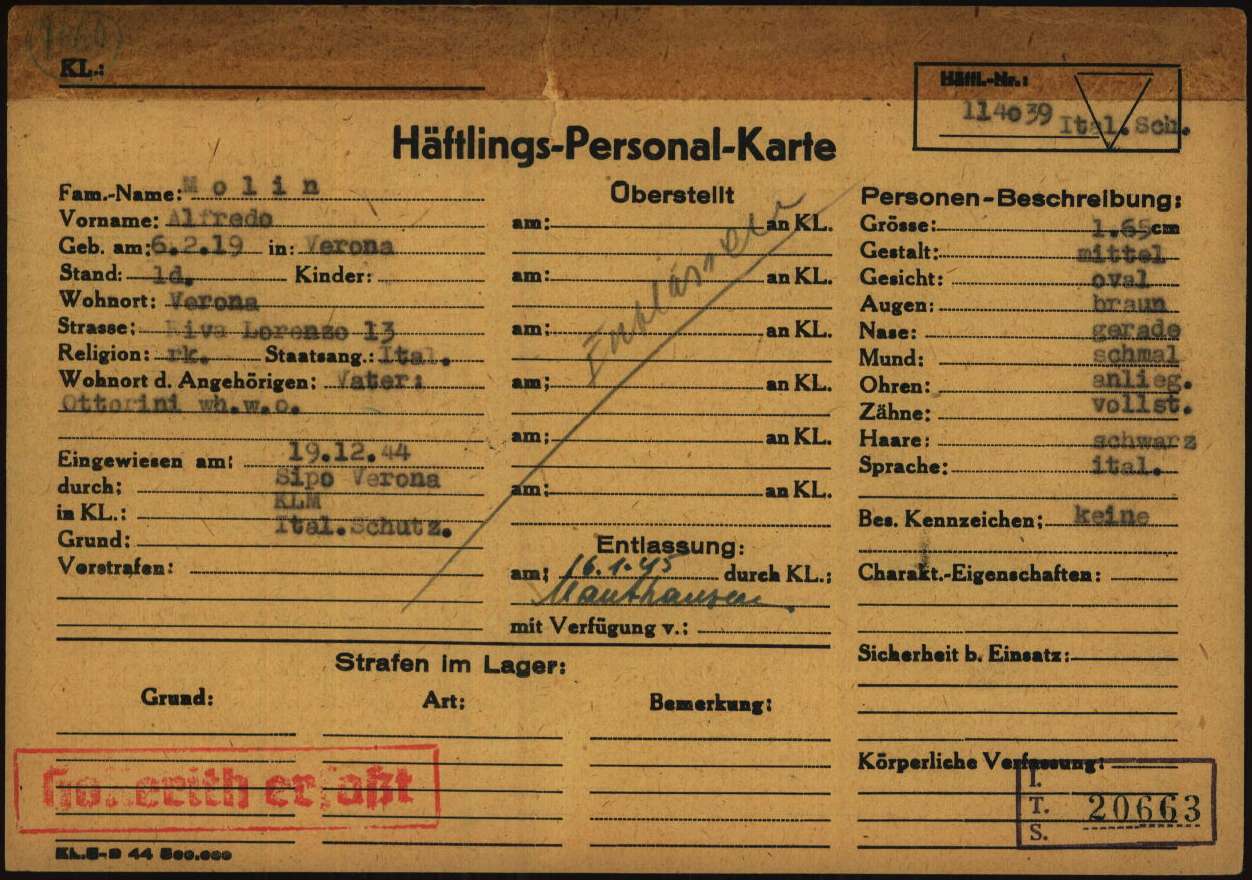 1660
KL.:
Häftl.-Nr.:
114039 Ital. Sch.
Häftlings-Personal-Karte
Fam.-Name: Molin
Vorname: Alfredo
Geb. am: 6.2.19 in: Verona
Stand: ld. Kinder:
Wohnort: Verona
Strasse: Riva Lorenzo 13
Religion: rk. Staatsang.: Ital.
Wohnort d. Angehörigen: Vater:
Ottorini wh.w.o.
Eingewiesen am: 19.12.44
durch: Sipo Verona
in KL.: KLM
Grund: Ital.Schutz.
Vorstrafen:
Überstellt
am: an KL.
am: an KL.
am: an KL.
am: an KL.
am: an KL.
am: an KL.
Entlassen
Entlassung:
am: 16.1.45 durch KL.:
Mauthausen.
mit Verfügung v.:
Personen-Beschreibung:
Grösse: 1.65 cm
Gestalt: mittel
Gesicht: oval
Augen: braun
Nase: gerade
Mund: schmal
Ohren: anlieg.
Zähne: vollst.
Haare: schwarz
Sprache: ital.
Bes. Kennzeichen: keine
Charakt.-Eigenschaften:
Sicherheit b. Einsatz:
Körperliche Verfassung:
Strafen im Lager:
Grund: Art: Bemerkung:
Hollerith erfaßt
I.
T. 20663
S.